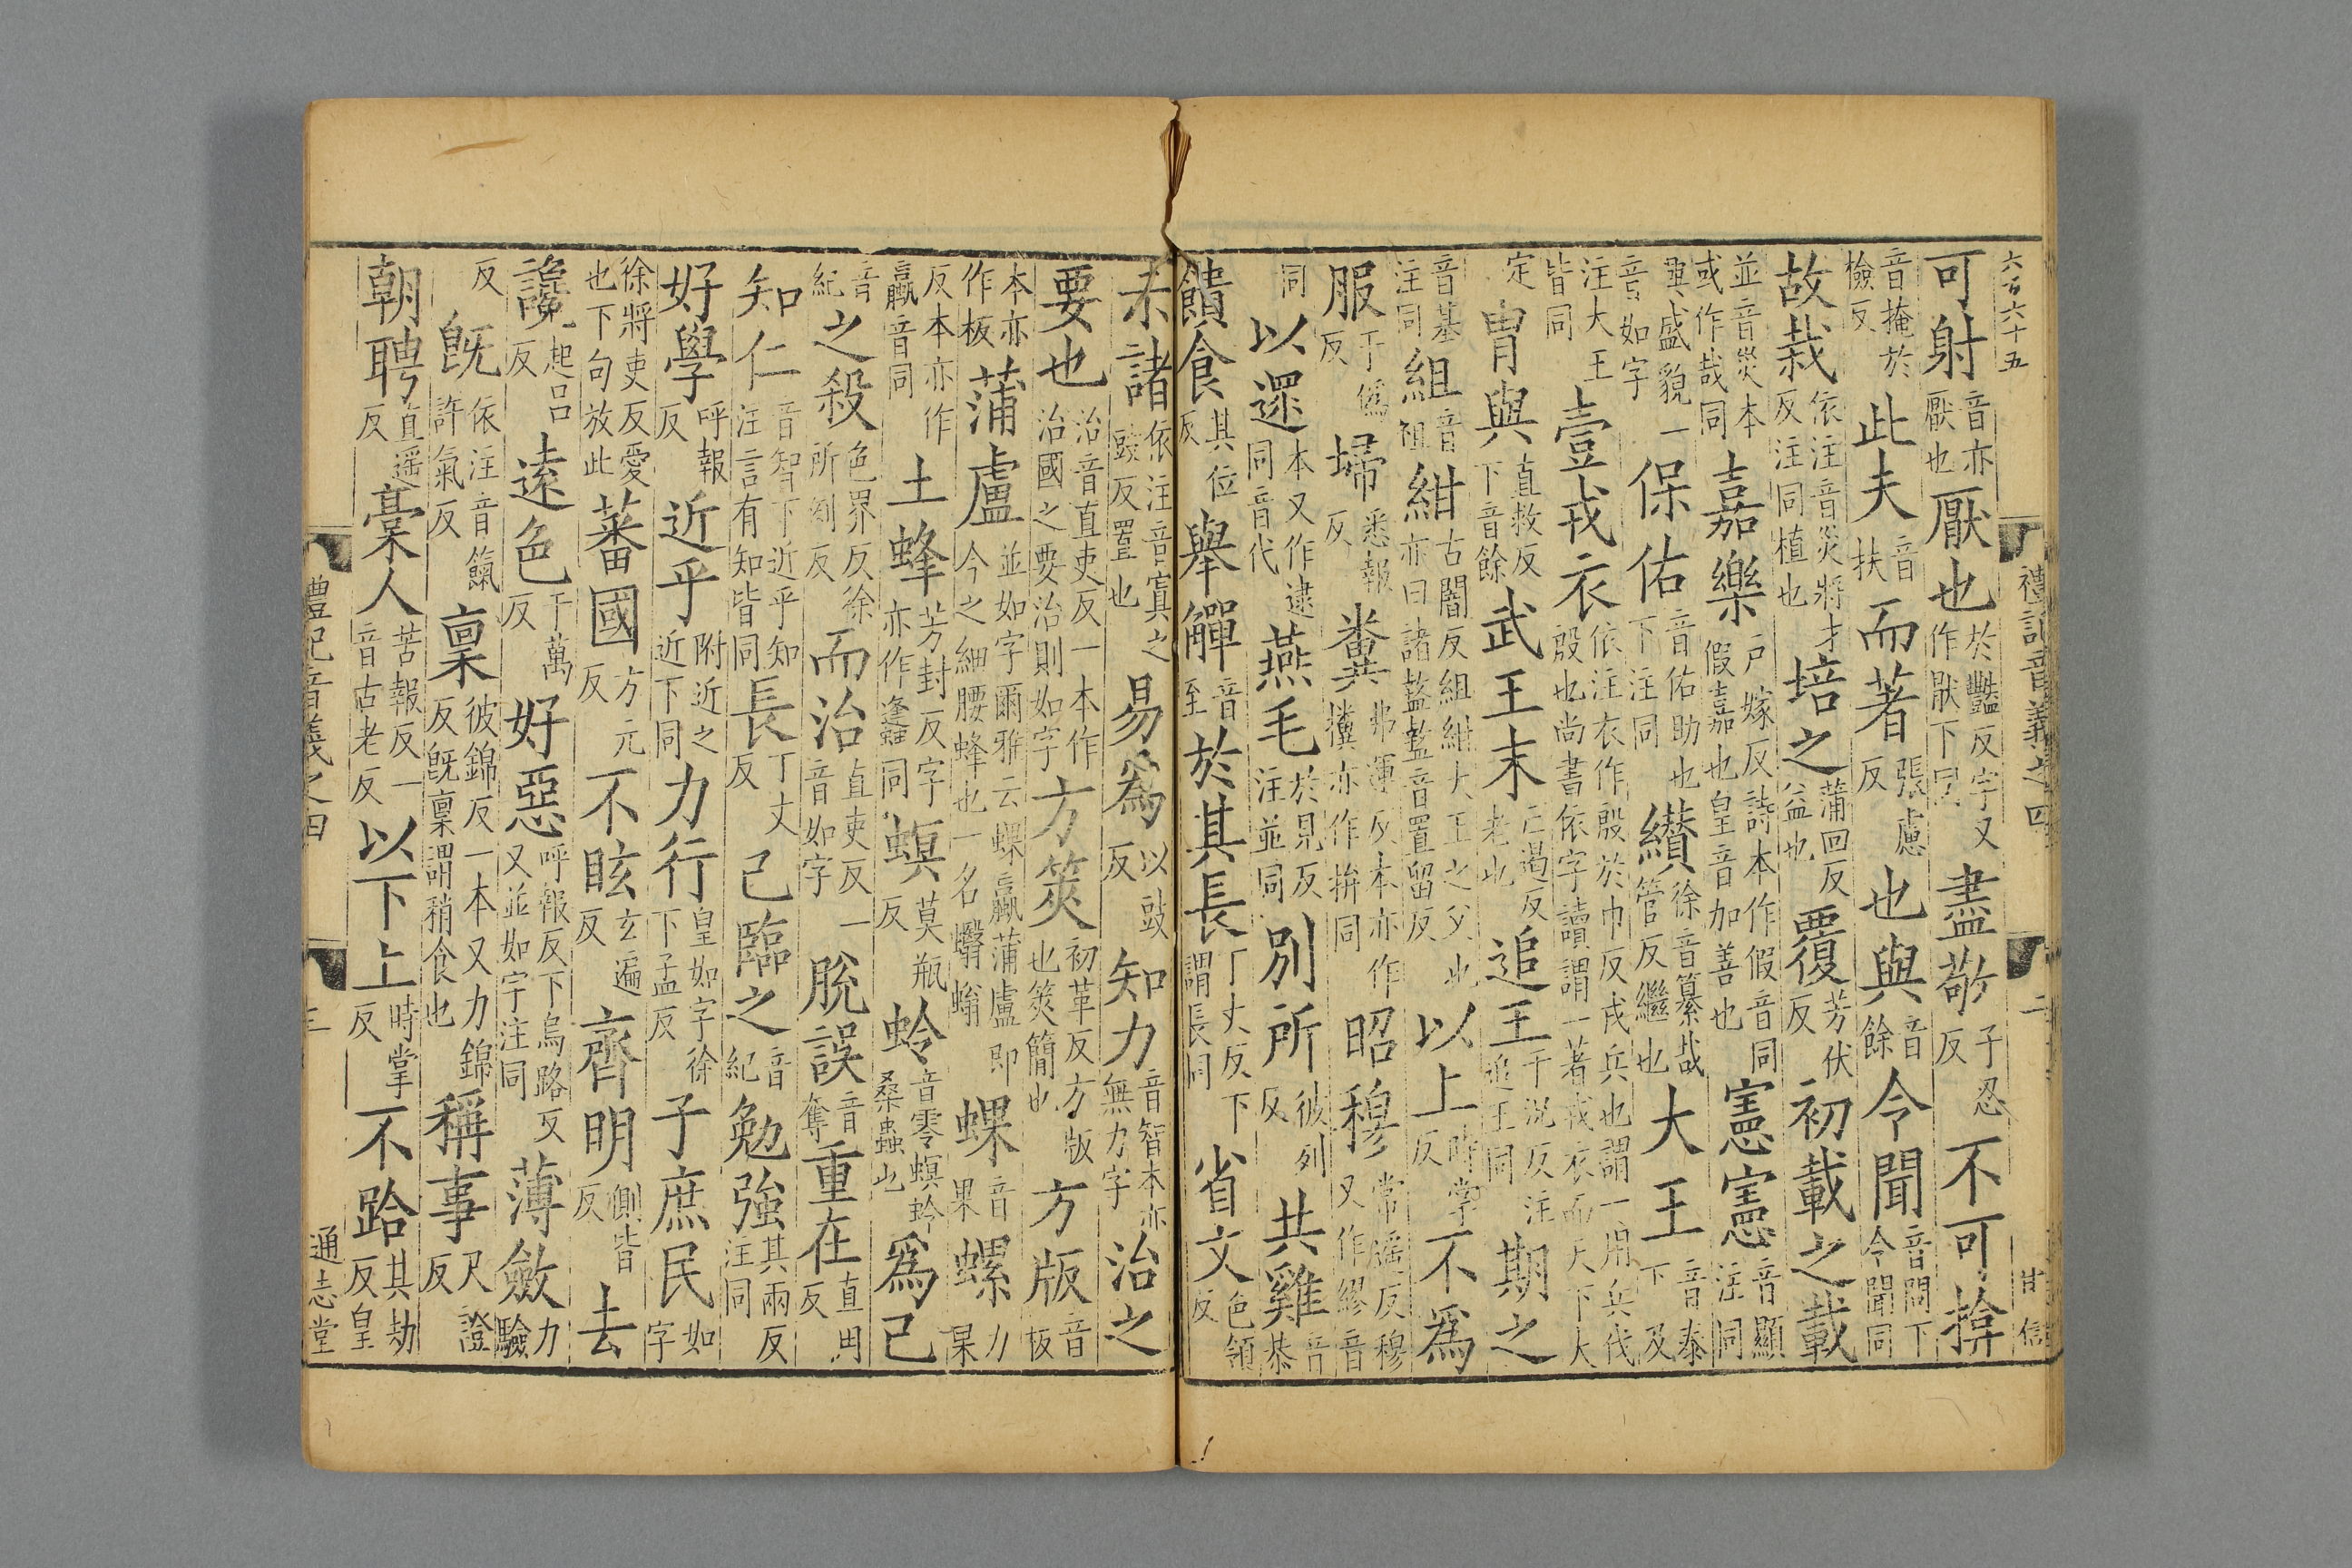 六百六十五
禮記音義之四
二
甘信
可射音亦厭也厭也於豔反字又作猒下同盡敬子忍反不可揜
音掩於檢反此夫音扶而著張慮反也與音餘令聞音問下令聞同
故栽依注音災將才反注同植也培之蒲回反益也覆芳伏反初載之載
並音災本或作哉同嘉樂戶嫁反詩本作假音同假嘉也皇音加善也憲憲音顯注同
興盛貌一音如字保佑音佑助也下注同纘徐音纂哉管反繼也大王音泰下及
注大王皆同壹戎衣依注衣作殷於巾反戎兵也謂一用兵伐殷也尚書依字讀謂一著戎衣而天下大
定冑與直救反下音餘武王末亡遏反老也追王于況反注追王同期之
音基注同組音祖紺古闇反組紺大王之父也亦曰諸盩盩音置留反以上時掌反不爲
服于僞反埽悉報反糞弗運反本亦作㩁亦作拚同昭穆常遙反穆又作繆音
同以還本又作逮同音代燕毛於見反注並同別所彼列反共雞音恭
饋食其位反舉觶音至於其長丁丈反下謂長同省文色領反
示諸依注音寘之豉反置也易爲以豉反知力音智本亦無力字治之
要也治音直吏反一本作治國之要治則如字方筴初革反方版也筴簡也方版音板
本亦作板蒲盧並如字爾雅云蜾蠃蒲盧即今之細腰蜂也一名蠮螉蜾音果螺力果
反本亦作蠃音同土蜂芳封反字亦作蠭同螟莫瓶反蛉音零螟蛉桑蟲也爲己
音紀之殺色界反徐所例反而治直吏反一音如字脫誤音奪重在直用反
知仁音智下近乎知注言有知皆同長丁丈反己臨之音紀勉強其兩反注同
好學呼報反近乎附近之近下同力行皇如字徐下孟反子庶民如字
徐將吏反愛也下句放此蕃國方元反不眩玄遍反齊明側皆反去
讒起呂反遠色于萬反好惡呼報反下烏路反又並如字注同薄斂力驗
反既依注音餼許氣反稟彼錦反一本又力錦反既稟謂稍食也稱事尺證反
朝聘直遙反槀人苦報反一音古老反以下上時掌反不跲其劫反皇
禮記音義之四
三
通志堂